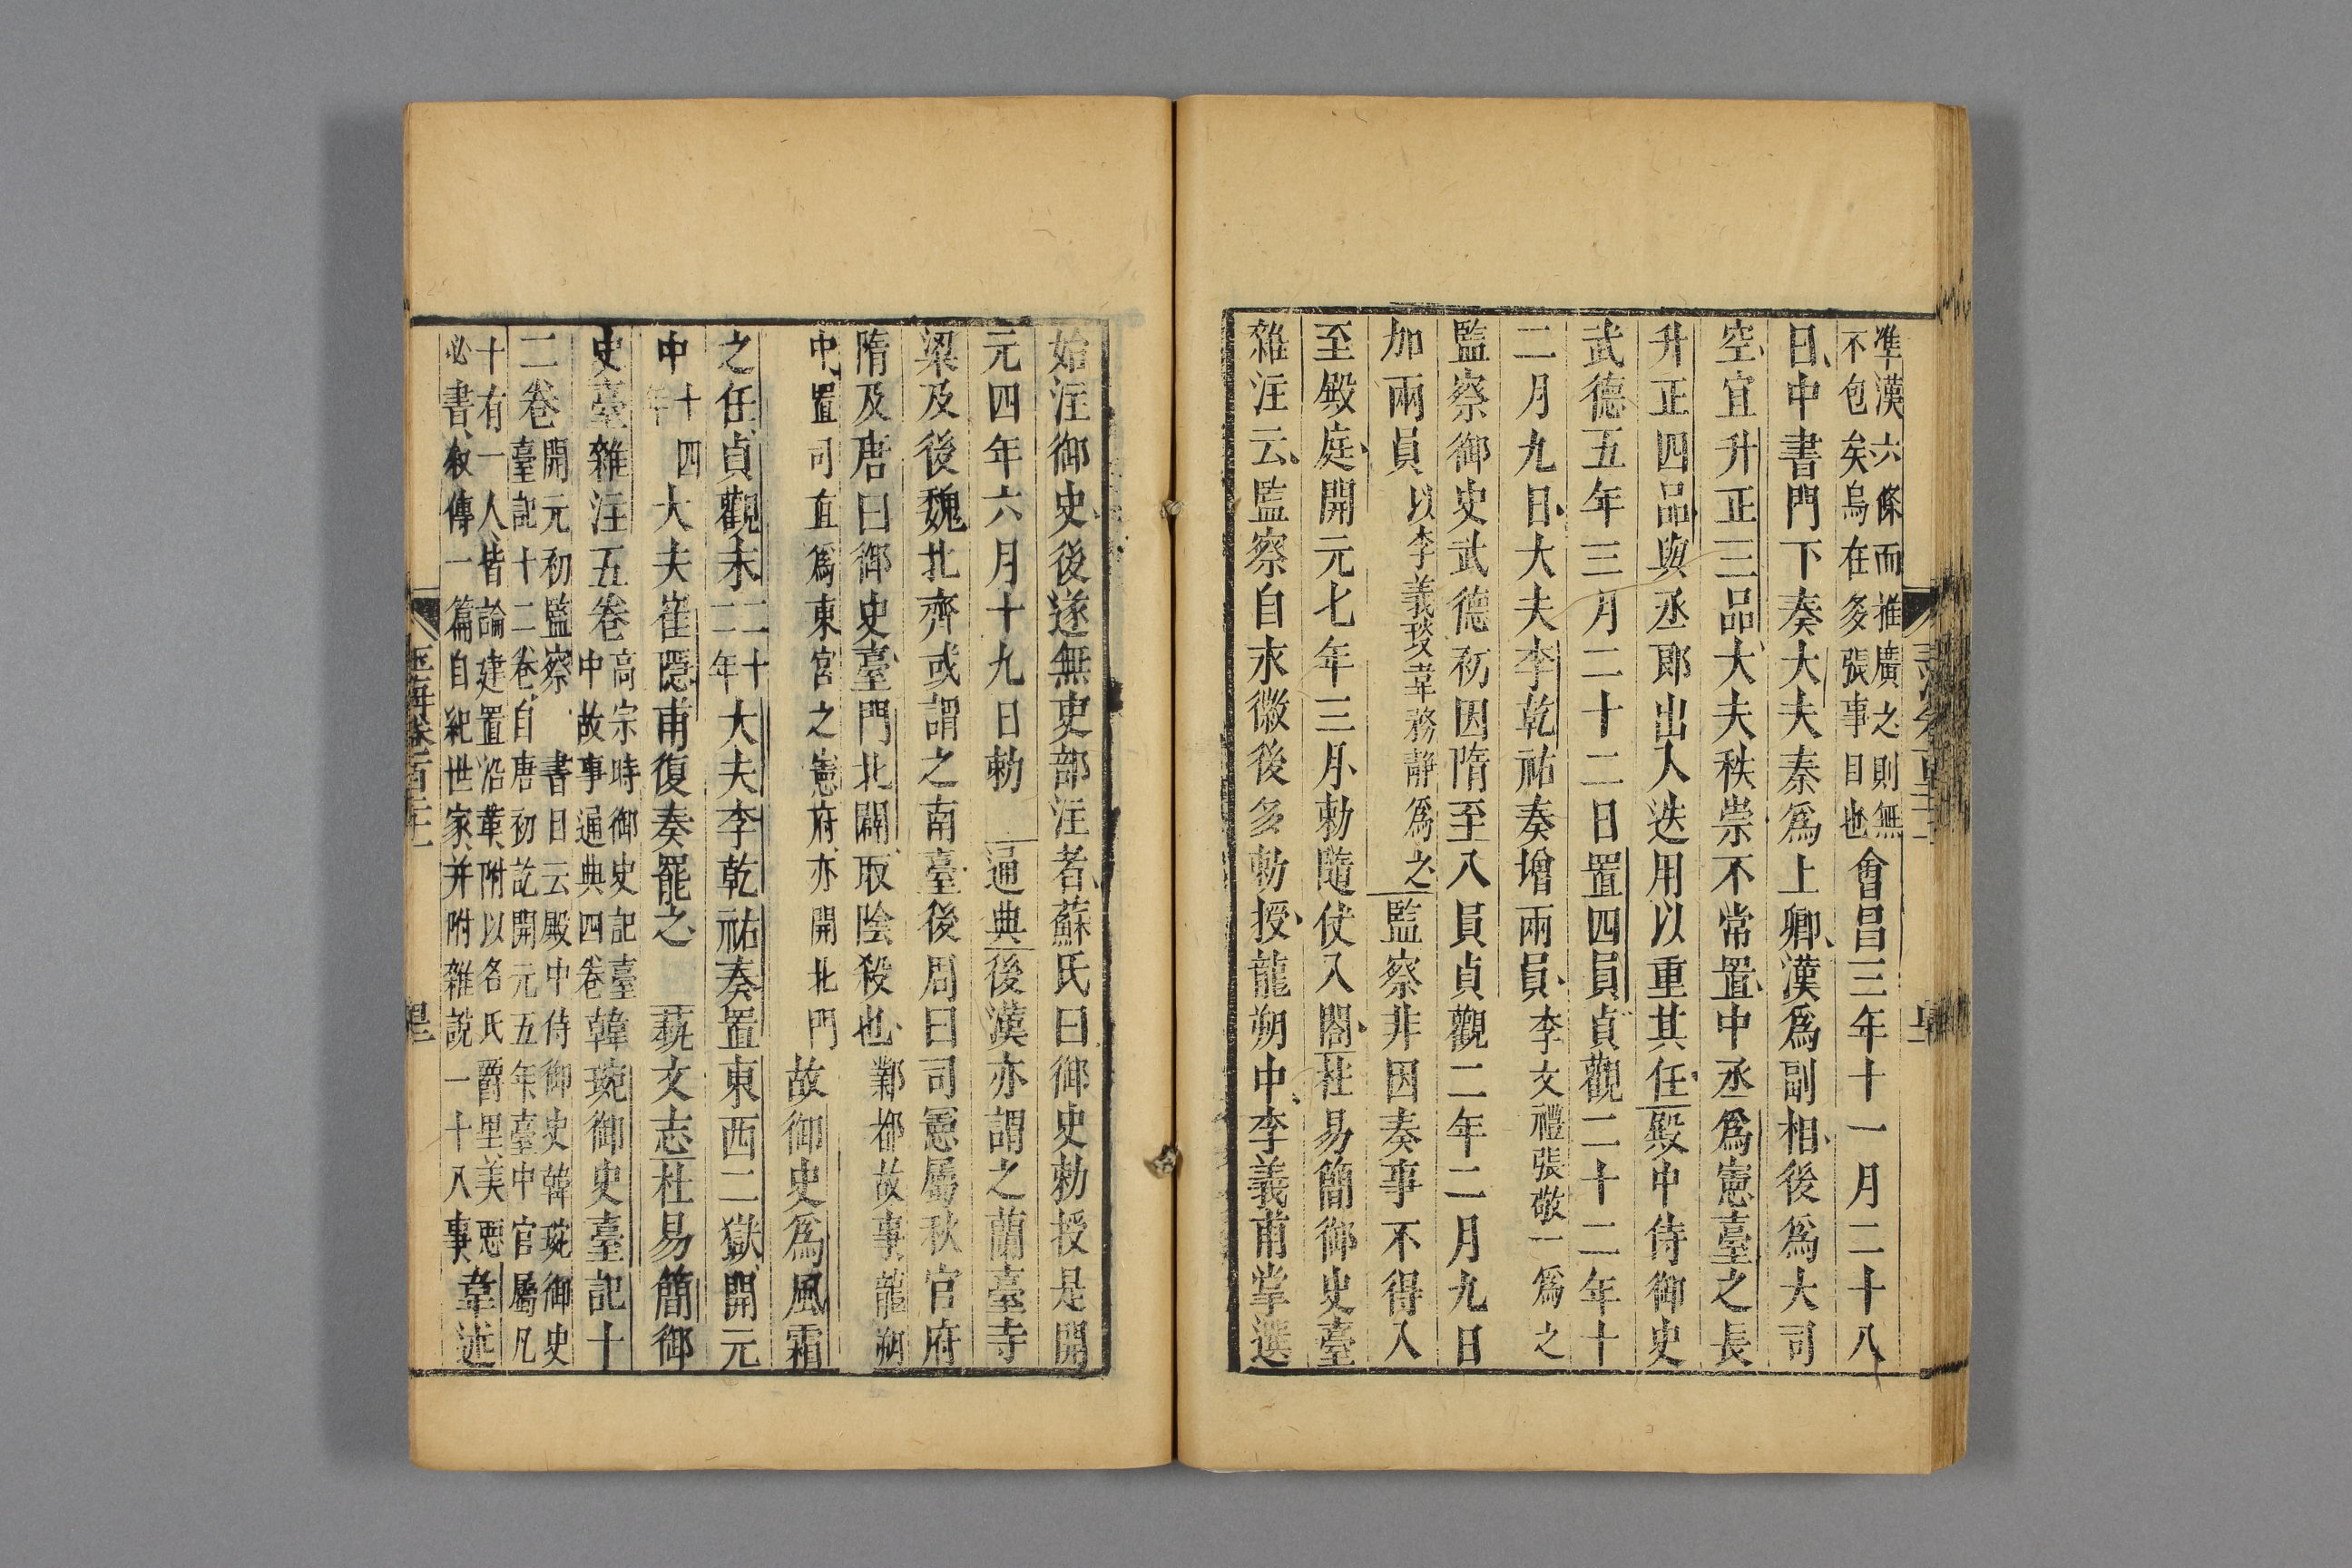 準漢六條而推廣之則無
不包矣烏在多張事目也會昌三年十一月二十八
日中書門下奏大夫秦爲上卿漢爲副相後爲大司
空宜升正三品大夫秩崇不常置中丞爲憲臺之長
升正四品與丞郎出入迭用以重其任殿中侍御史
武德五年三月二十二日置四員貞觀二十二年十
二月九日大夫李乾祐奏增兩員李文禮張敬一爲之
監察御史武德初因隋至八員貞觀二年二月九日
加兩員以李義琰韋務靜爲之監察非因奏事不得入
至殿庭開元七年三月勅隨仗入閤杜易簡御史臺
雜注云監察自永徽後多勅授龍朔中李義甫掌選
始注御史後遂無吏部注者蘇氏曰御史勅授是開
元四年六月十九日勅 通典後漢亦謂之蘭臺寺
梁及後魏北齊或謂之南臺後周曰司憲屬秋官府
隋及唐曰御史臺門北闢取陰殺也鄴都故事龍朔
中置司直爲東宮之憲府亦開北門故御史爲風霜
之任貞觀末二十二年大夫李乾祐奏置東西二獄開元
中十四年大夫崔隱甫復奏罷之 藝文志杜易簡御
史臺雜注五卷高宗時御史記臺中故事通典四卷韓琬御史臺記十
二卷開元初監察 書目云殿中侍御史韓琬御史
臺記十二卷自唐初訖開元五年臺中官屬凡
十有一人皆論建置沿革附以名氏爵里美惡
必書敘傳一篇自紀世家并附雜說一十八事韋述